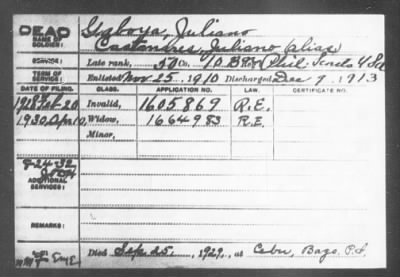 DEAD
NAME OF SOLDIER:
Ilaboya, Juliano
Castanires, Juliano (alias
SERVICE:
Late rank, 50 Co. 10 BPM Phil. Scouts U S A
TERM OF SERVICE:
Enlisted Nov. 25, 1910 Discharged Dec 7, 1913
DATE OF FILING. CLASS. APPLICATION NO. LAW. CERTIFICATE NO.
1928 Feb-20 Invalid, 1605869 R.E.
1930, Apr 10, Widow, 1664983 R.E.
Minor,
8-24-32
ADDITIONAL SERVICES:
REMARKS:
Died Sep. 25, 1929, at Cebu, Bago, P.I.